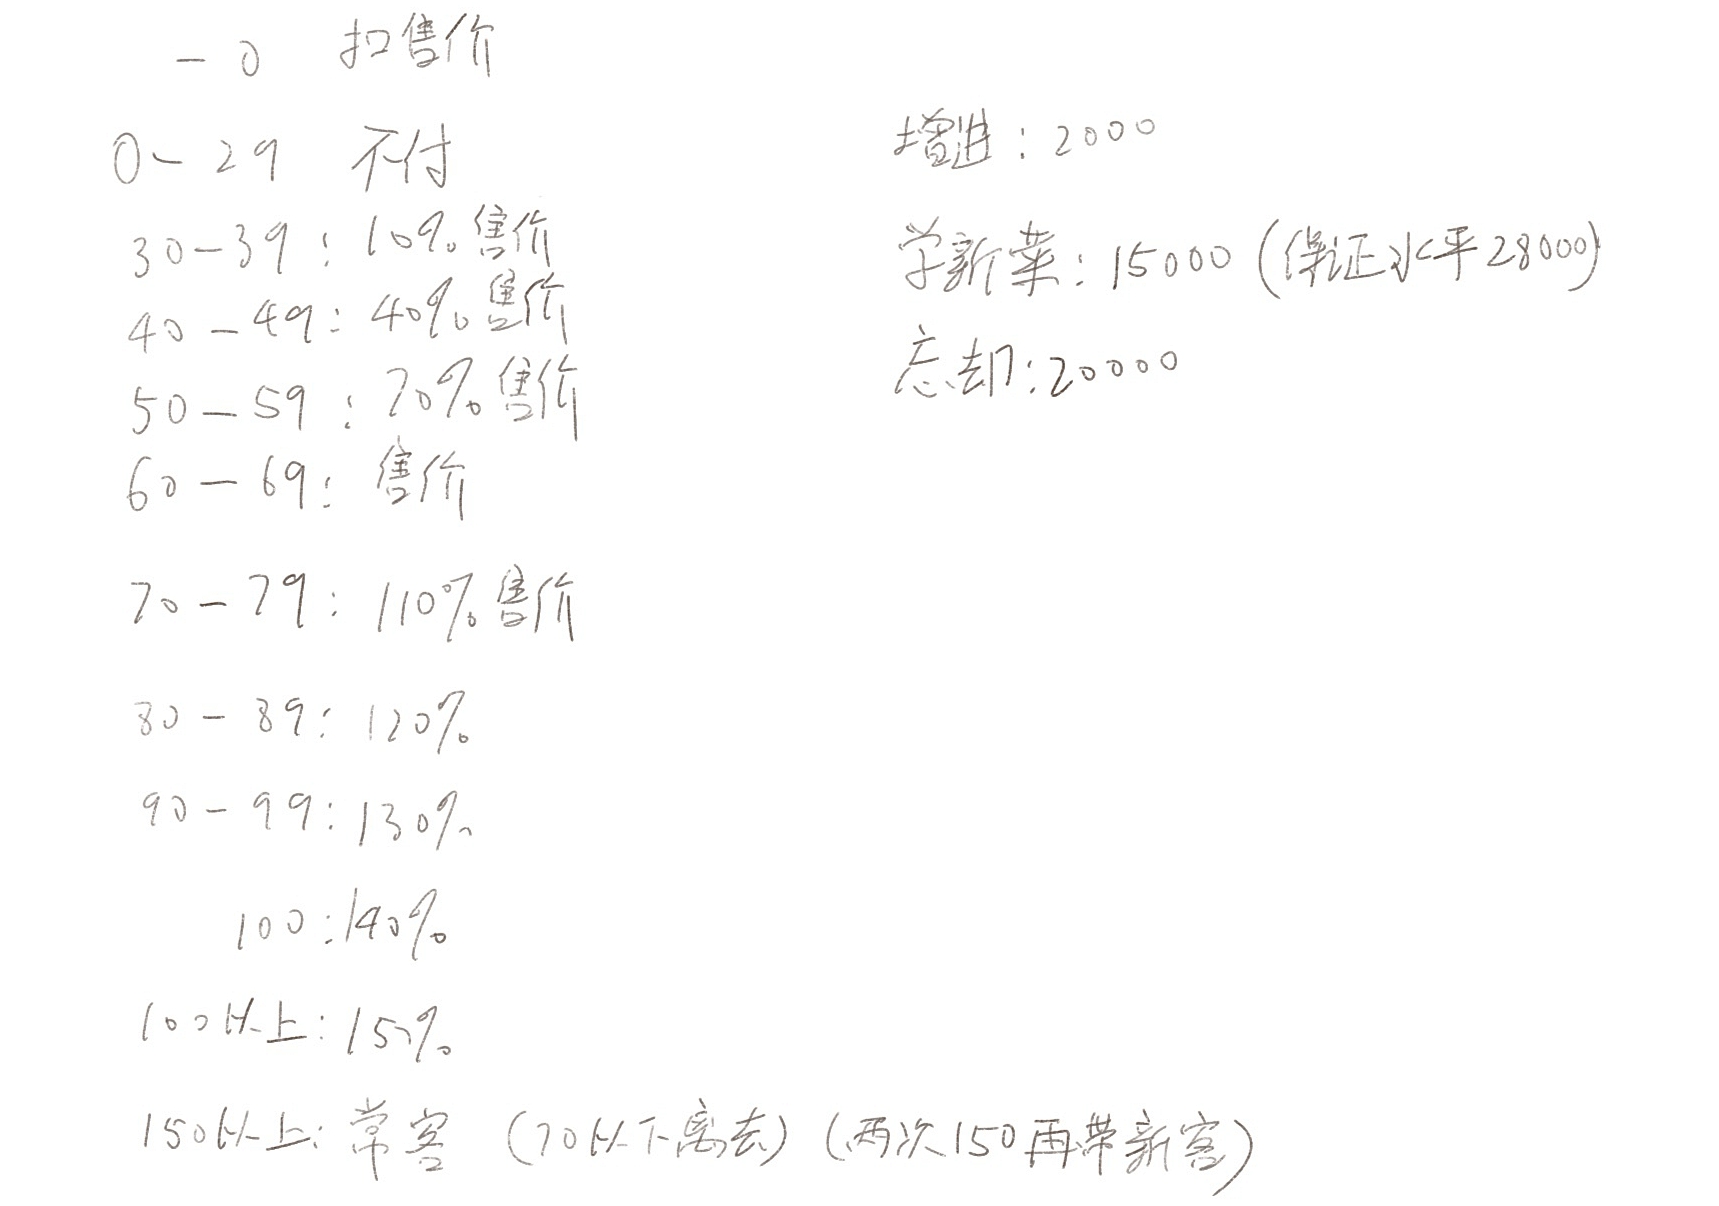 -0 扣售价
0-29 不付
30-39: 10%售价
40-49: 40%售价
50-59: 70%售价
60-69: 售价
70-79: 110%售价
80-89: 120%
90-99: 130%
100: 140%
100以上: 150%
150以上: 常客 (70以下离去) (两次150再带新客)
增进: 2000
学新菜: 15000 (保证水平28000)
忘却: 20000